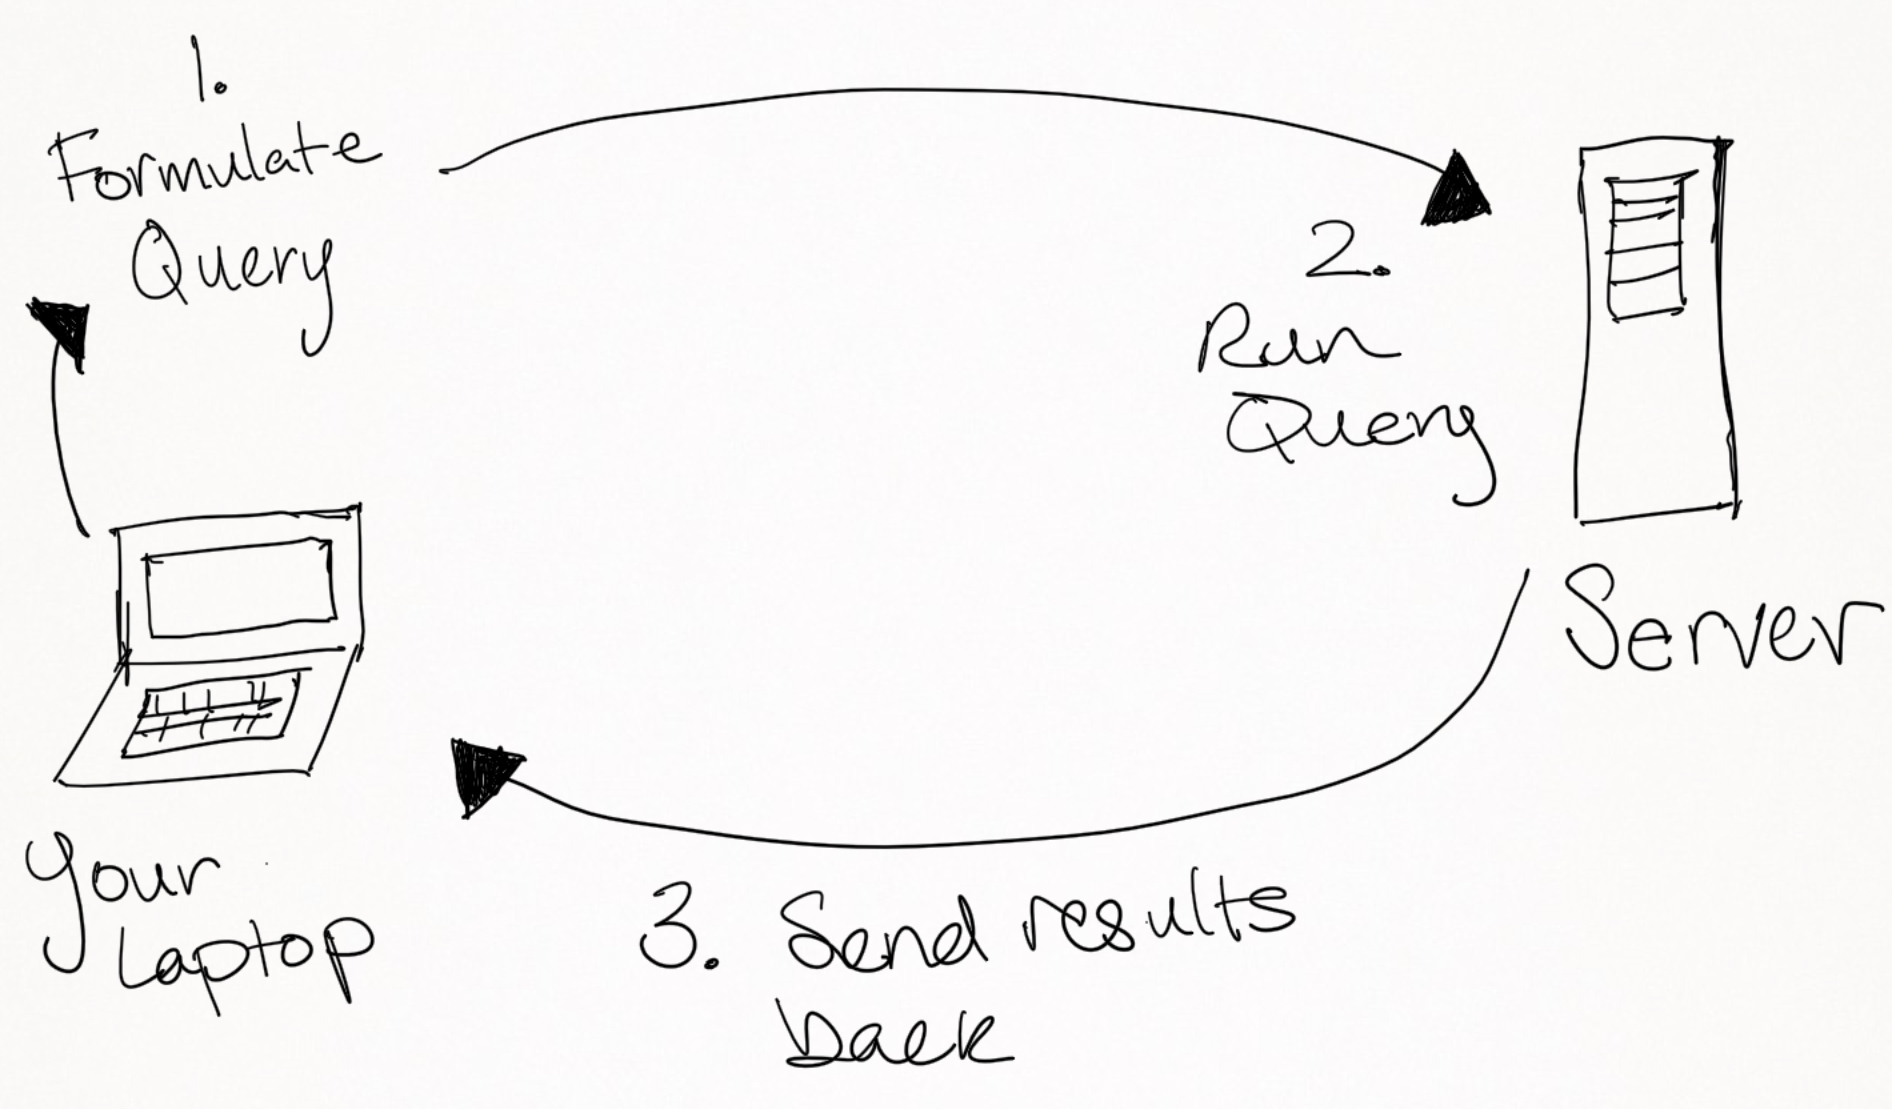 1.
Formulate
Query
2.
Run
Query
Server
Your
Laptop
3. Send results
back